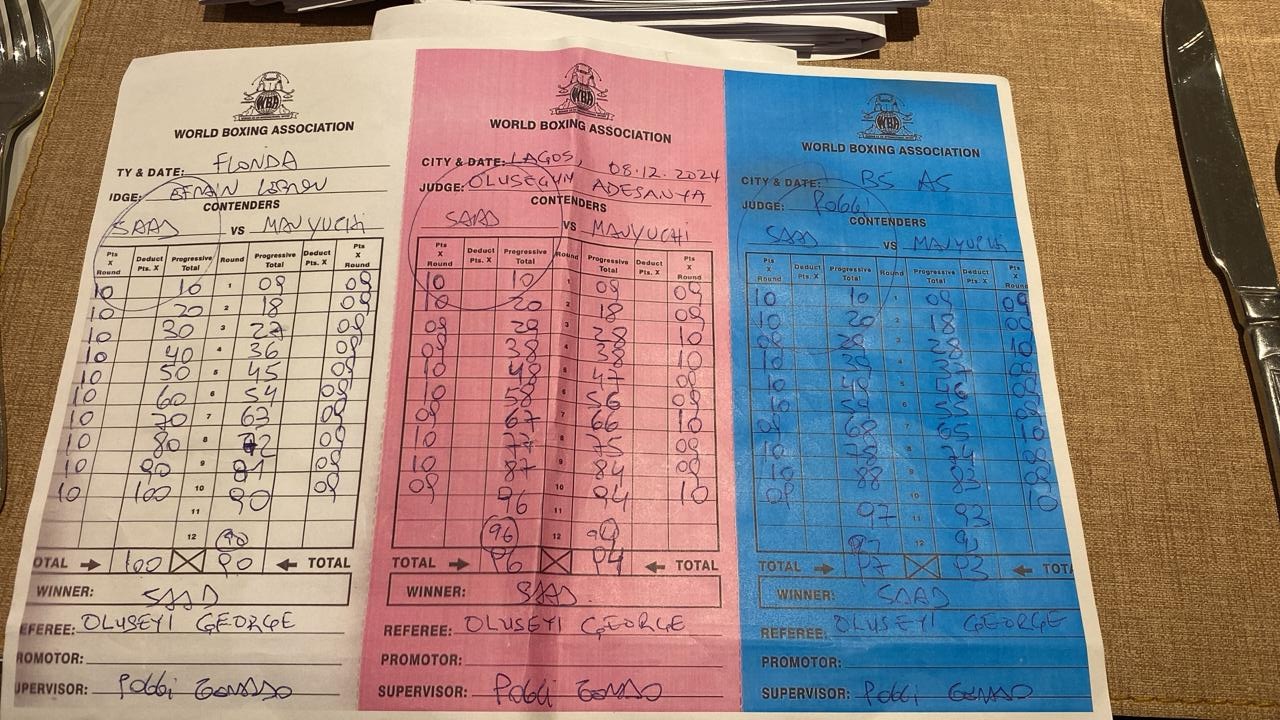 WORLD BOXING ASSOCIATION
TY & DATE: FLONDA
IDGE: EFRAIN
CONTENDERS
SAAD VS MANYUCHI
Pts X Round Deduct Pts. X Progressive Total Round Progressive Total Deduct Pts. X Pts X Round
10 10 1 09 09
10 20 2 18 09
10 30 3 27 09
10 40 4 36 09
10 50 5 45 09
10 60 6 54 09
10 70 7 63 09
10 80 8 72 09
10 90 9 81 09
10 100 10 90 09
11
12 90
OTAL → 100 90 ← TOTAL
WINNER: SAAD
EFEREE: OLUSEYI GEORGE
ROMOTOR:
UPERVISOR: Poggi
WORLD BOXING ASSOCIATION
CITY & DATE: LAGOS, 08.12.2024
JUDGE: OLUSEGUN ADESANYA
CONTENDERS
SAAD VS MANYUCHI
Pts X Round Deduct Pts. X Progressive Total Round Progressive Total Deduct Pts. X Pts X Round
10 10 1 09 09
10 20 2 18 09
09 29 3 28 10
09 38 4 38 10
10 48 5 47 09
10 58 6 56 09
09 67 7 66 10
10 77 8 75 09
10 87 9 84 09
09 96 10 94 10
11
96 12 94
TOTAL → 96 94 ← TOTAL
WINNER: SAAD
REFEREE: OLUSEYI GEORGE
PROMOTOR:
SUPERVISOR: Poggi
WORLD BOXING ASSOCIATION
CITY & DATE: BS AS
JUDGE: Poggi
CONTENDERS
SAAD VS MANYUCHI
Pts X Round Deduct Pts. X Progressive Total Round Progressive Total Deduct Pts. X Pts X Round
10 10 1 09 09
10 20 2 18 09
09 29 3 28 10
10 39 4 37 09
10 49 5 46 09
10 59 6 55 09
09 68 7 65 10
10 78 8 74 09
10 88 9 83 09
09 97 10 93 10
11
97 12 93
TOTAL → 97 93 ← TOT
WINNER: SAAD
REFEREE: OLUSEYI GEORGE
PROMOTOR:
SUPERVISOR: Poggi